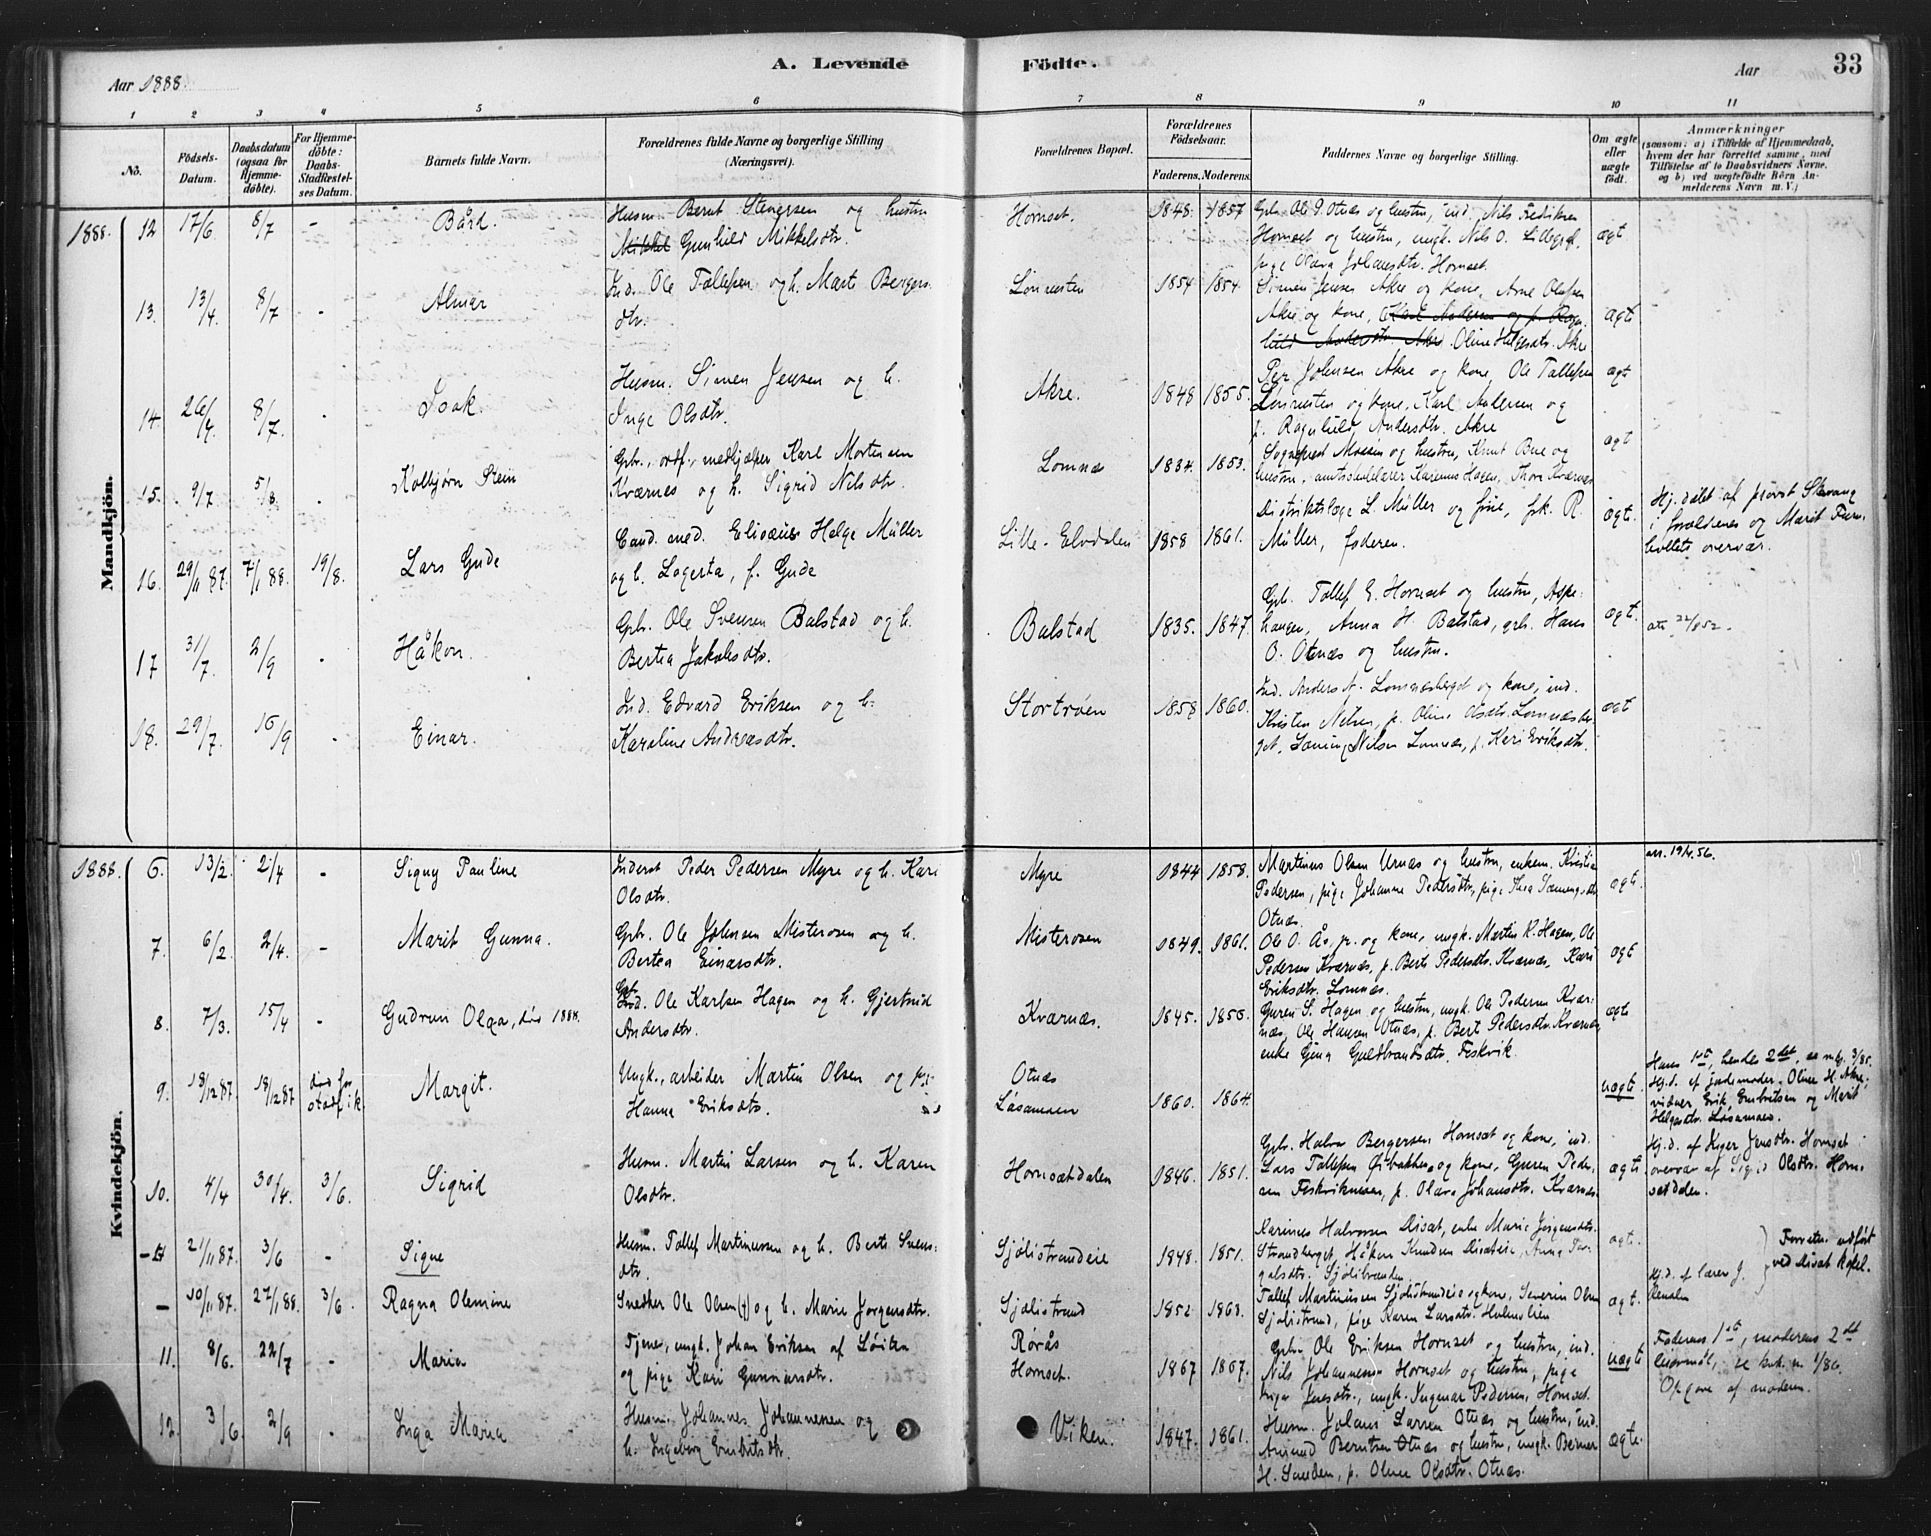 Aar 1888.
A. Levende
Födte.
Aar
33
1 2 3 4 5 6 7 8 9 10 11
No.
Födsels-Datum.
Daabsdatum (ogsaa for Hjemmedöbte).
For Hjemmedöbte: Daabs-Stadfæstelses Datum.
Barnets fulde Navn.
Forældrenes fulde Navne og borgerlige Stilling (Næringsvei).
Forældrenes Bopæl.
Forældrenes Födselsaar.
Faderens. Moderens.
Faddernes Navne og borgerlige Stilling.
Om ægte eller uægte födt.
Anmærkninger
(saasom: a) i Tilfælde af Hjemmedaab, hvem der har forrettet samme, med Tilföielse af to Daabsvidners Navne, og b) ved uægtefödte Börn Anmelderens Navn m. V.)
Mandkjön.
1888. 12 17/6 8/7 - Bård.
Husm. Bernt Stenersen og hustru
Mikkel Gunhild Mikkelsdtr.
Hornset. 1848. 1857
Gbr. Ole P. Otnæs og hustru, ind. Nils Fredriksen
Hornset og hustru, ungk. Nils O.
pige Olava Johansdtr. Hornset.
ægt
13. 13/4 8/7 - Almar
Ind. Ole Tollefsen og h. Marte Bergersdtr.
1854 1854
Simen Jensen Akre og kone, Arne Olafsen
Akre og kone, Karl Andersen og p. Ragnhild Andersdtr. Akre Oline Helgesdtr. Akre
ægte
14. 26/4 8/7 . Isak.
Husm. Simen Jensen og h.
Inge Olsdtr.
Akre. 1848 1855.
Per Johnsen Akre og kone Ole Tollefsen
og kone. Karl Andersen og
p. Ragnhild Andersdtr. Akre
ægt
15. 9/7 5/8 . Kolbjørn Stein
Gbr., ordf., medhjælper Karl Mortensen
Kværnes og h. Sigrid Nilsdtr.
Lomnæs 1834. 1853.
Sogneprest og hustru, Knut Bue og
hustru, Karenus Hagen, Thora Kværnæs
ægt
16. 29/11 87. 7/1 88. 19/8. Lars Gude
Cand. med. Elisæus Helge Müller
og h. Lagerta, f. Gude
Lille-Elvdalen 1858 1861.
Distriktslæge L. Müller og frue, frk. R.
Müller, faderen.
ægte.
Hj. døbt af provst
i forældrenes og Marit
overvær.
17 31/7. 2/9 . Håkon.
Gbr. Ole Svensen Balstad og h.
Bertea Jakobsdtr.
Balstad 1835. 1847.
Gbr. Tollef E. Hornset og hustru,
Anna H. Balstad, gbr. Hans
O. Otnæs og hustru.
ægt.
18. 29/7. 16/9 - Einar.
Ind. Edvard Eriksen og h.
Karoline Andreasdtr.
Stortrøen 1858 1860.
Ind. Anders A. Lomnæsberget og kone, ind.
Kristen Nilsen, p. Oline Olsdtr. Lomnæsberget, Nilsen Lomnæs, p. Kari Eriksdtr.
ægt
Kvindekjön.
1888. 6. 13/2. 2/4 - Signy Pauline
Inderst Peder Pedersen Myre og h. Kari
Olsdtr.
Myre 1844 1858.
Martinus Olsen Urnæs og hustru, enkem. Kristian
Pedersen, pige Johanne Pedersdtr., pige Thea
Otnæs.
ægte.
ar. 19/4.56.
7. 6/2 2/4. - Marit Gunna.
Gbr. Ole Johnsen Misterosen og h.
Bertea Einarsdtr.
Misterosen 1849. 1861.
Ole O. Ås, p. og kone, ungk. Martin K. Hagen, Ole
Pedersen Kværnæs, p. Berte Pedersdtr. Kværnæs, Kari
Eriksdtr. Lomnæs.
ægt
8. 7/3. 15/4 - Gudrun Olga, död 1888.
Gbr. Ind. Ole Karlsen Hagen og h. Gjertrud
Andersdtr.
Kværnæs. 1845. 1850.
Guren S. Hagen og hustru, ungk. Ole Pedersen Kværnæs, Ole Hansen Otnæs, p. Berte Pedersdtr. Kværnæs,
enke Gina Guldbrandsdtr. Fiskvik.
ægte
9. 18/12 87. 18/12 87 død før stadf.
Margit.
Ungk., arbeider Martin Olsen og pige
Hanna Eriksdtr.
Otnæs
Løsamoen 1860. 1864.
uægte.
Hans 1ste, hendes 2det,
Hj.d. af jordemoder Oline H. Akre.
vidner Erik Embretsen og Marit
Helgesdtr. Løsamoen.
10. 4/4 30/4. 3/6. Sigrid
Husm. Martin Larsen og h. Karen
Olsdtr.
Hornsætdalen 1846. 1851.
Gbr. Halvor Bergersen Hornsæt og kone, ind.
Lars Tollefsen og kone, Guren Pedersen Fiskvikmoen, p. Olava Johansdtr. Kværnæs
ægte
Hj.d. af Jensdtr. Hornset
overvær af Sigrid Olsdtr. Hornsetdalen.
21/11 87. 3/6 - Signe
Husm. Tollef Martinussen og h. Berte Svensdtr.
Sjølistrandeie 1848. 1851.
Karinus Halvorsen Disæt, enke Marie Jørgensdtr.
Strandberget, Håkon Knudsen Disæteie, Anna
Sjølistranden
ægte.
Forretn. udført
ved Disæt kapel.
- 10/11 87. 27/1 88. 3/6. Ragna Olemine
Snedker Ole Olsen (†) og h. Marie Jørgensdtr.
Sjølistrand 1852 1863.
Tollef Martinussen Sjølistrandeie og kone, Severin Olsen
Sjølistrand, pige Karen Larsdtr. Holmolien
ægt.
Hj.d. af lærer J.
11. 8/6. 22/7 - Maria
Tjener, ungk. Johan Eriksen af
og pige Kari Gunnarsdtr.
Rørås
Hornset. 1867 1867.
Gbr. Ole Eriksen Hornset og hustru, ind.
Nils Johannessen Hornset og hustru, pige
Jensdtr., ungk. Ingemar Pedersen, Hornset.
uægte
Faderens 1ste, moderens 2det
Opgave af moderen.
12. 3/6. 2/9 . Inga Maria
Husm. Johannes Johannessen og
h. Ingeborg Embretsdtr.
Viken. 1847. 1861.
Husm. Johans Larsen Otnæs og hustru, ind.
Amund Berntsen Otnæs og hustru, ungk. Berner
H. p. Oline Olsdtr. Otnæs.
ægte.